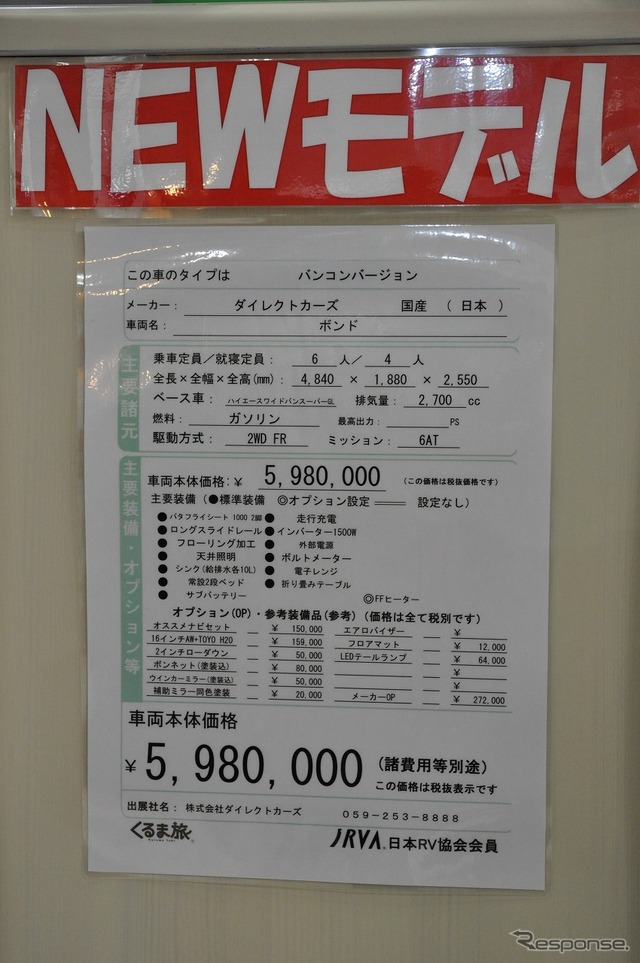 NEWモデル
この車のタイプは バンコンバージョン
メーカー： ダイレクトカーズ 国産 （ 日本 ）
車両名： ボンド
主要諸元
乗車定員／就寝定員： 6 人／ 4 人
全長×全幅×全高(mm)： 4,840 × 1,880 × 2,550
ベース車： ハイエースワイドバンスーパーGL 排気量： 2,700 cc
燃料： ガソリン 最高出力： PS
駆動方式： 2WD FR ミッション： 6AT
主要装備・オプション等
車両本体価格：￥ 5,980,000 （この価格は税抜価格です）
主要装備（●標準装備 ◎オプション設定 設定なし）
●バタフライシート 1000 2脚 ● 走行充電
●ロングスライドレール ●インバーター1500W
● フローリング加工 ● 外部電源
● 天井照明 ● ボルトメーター
● シンク(給排水各10L) ● 電子レンジ
● 常設2段ベッド ● 折り畳みテーブル
● サブバッテリー ◎FFヒーター
オプション(OP)・参考装備品(参考) （価格は全て税別です）
オススメナビセット ￥ 150,000 エアロバイザー ￥
16インチAW+TOYO H20 ￥ 159,000 フロアマット ￥ 12,000
2インチローダウン ￥ 50,000 LEDテールランプ ￥ 64,000
ボンネット(塗装込) ￥ 80,000 ￥
ウインカーミラー(塗装込) ￥ 50,000 ￥
補助ミラー同色塗装 ￥ 20,000 メーカーOP ￥ 272,000
車両本体価格
￥ 5,980,000 （諸費用等別途）
この価格は税抜表示です
出展社名： 株式会社ダイレクトカーズ 059-253-8888
くるま旅 JRVA 日本RV協会会員
Kuruma Tabi
Response.